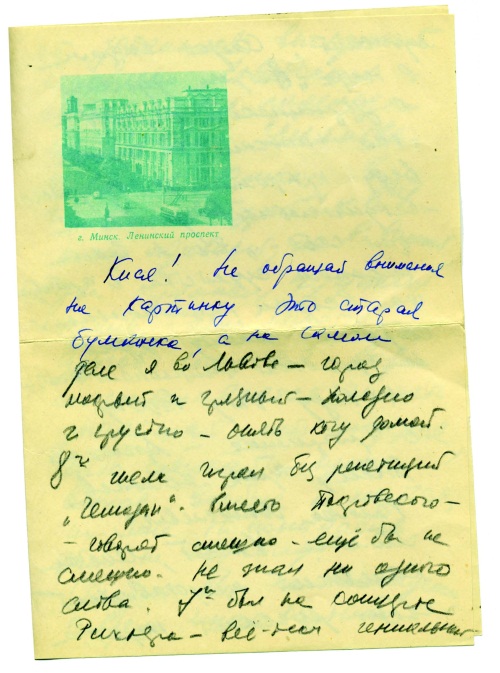 г. Минск. Ленинский проспект
Кися! Не обращай внимания
на картинку это старая
бумажка, а на самом
деле я во Львове – город
мокрый и грязный – холодно
и грустно – опять хочу домой.
8го числа играл без репетиций
„Чемодан". Вместо Покровского –
– говорят смешно – ещё бы не
смешно. Не знал ни одного
слова. 7го был на концерте
Рихтера – всё-таки гениальный